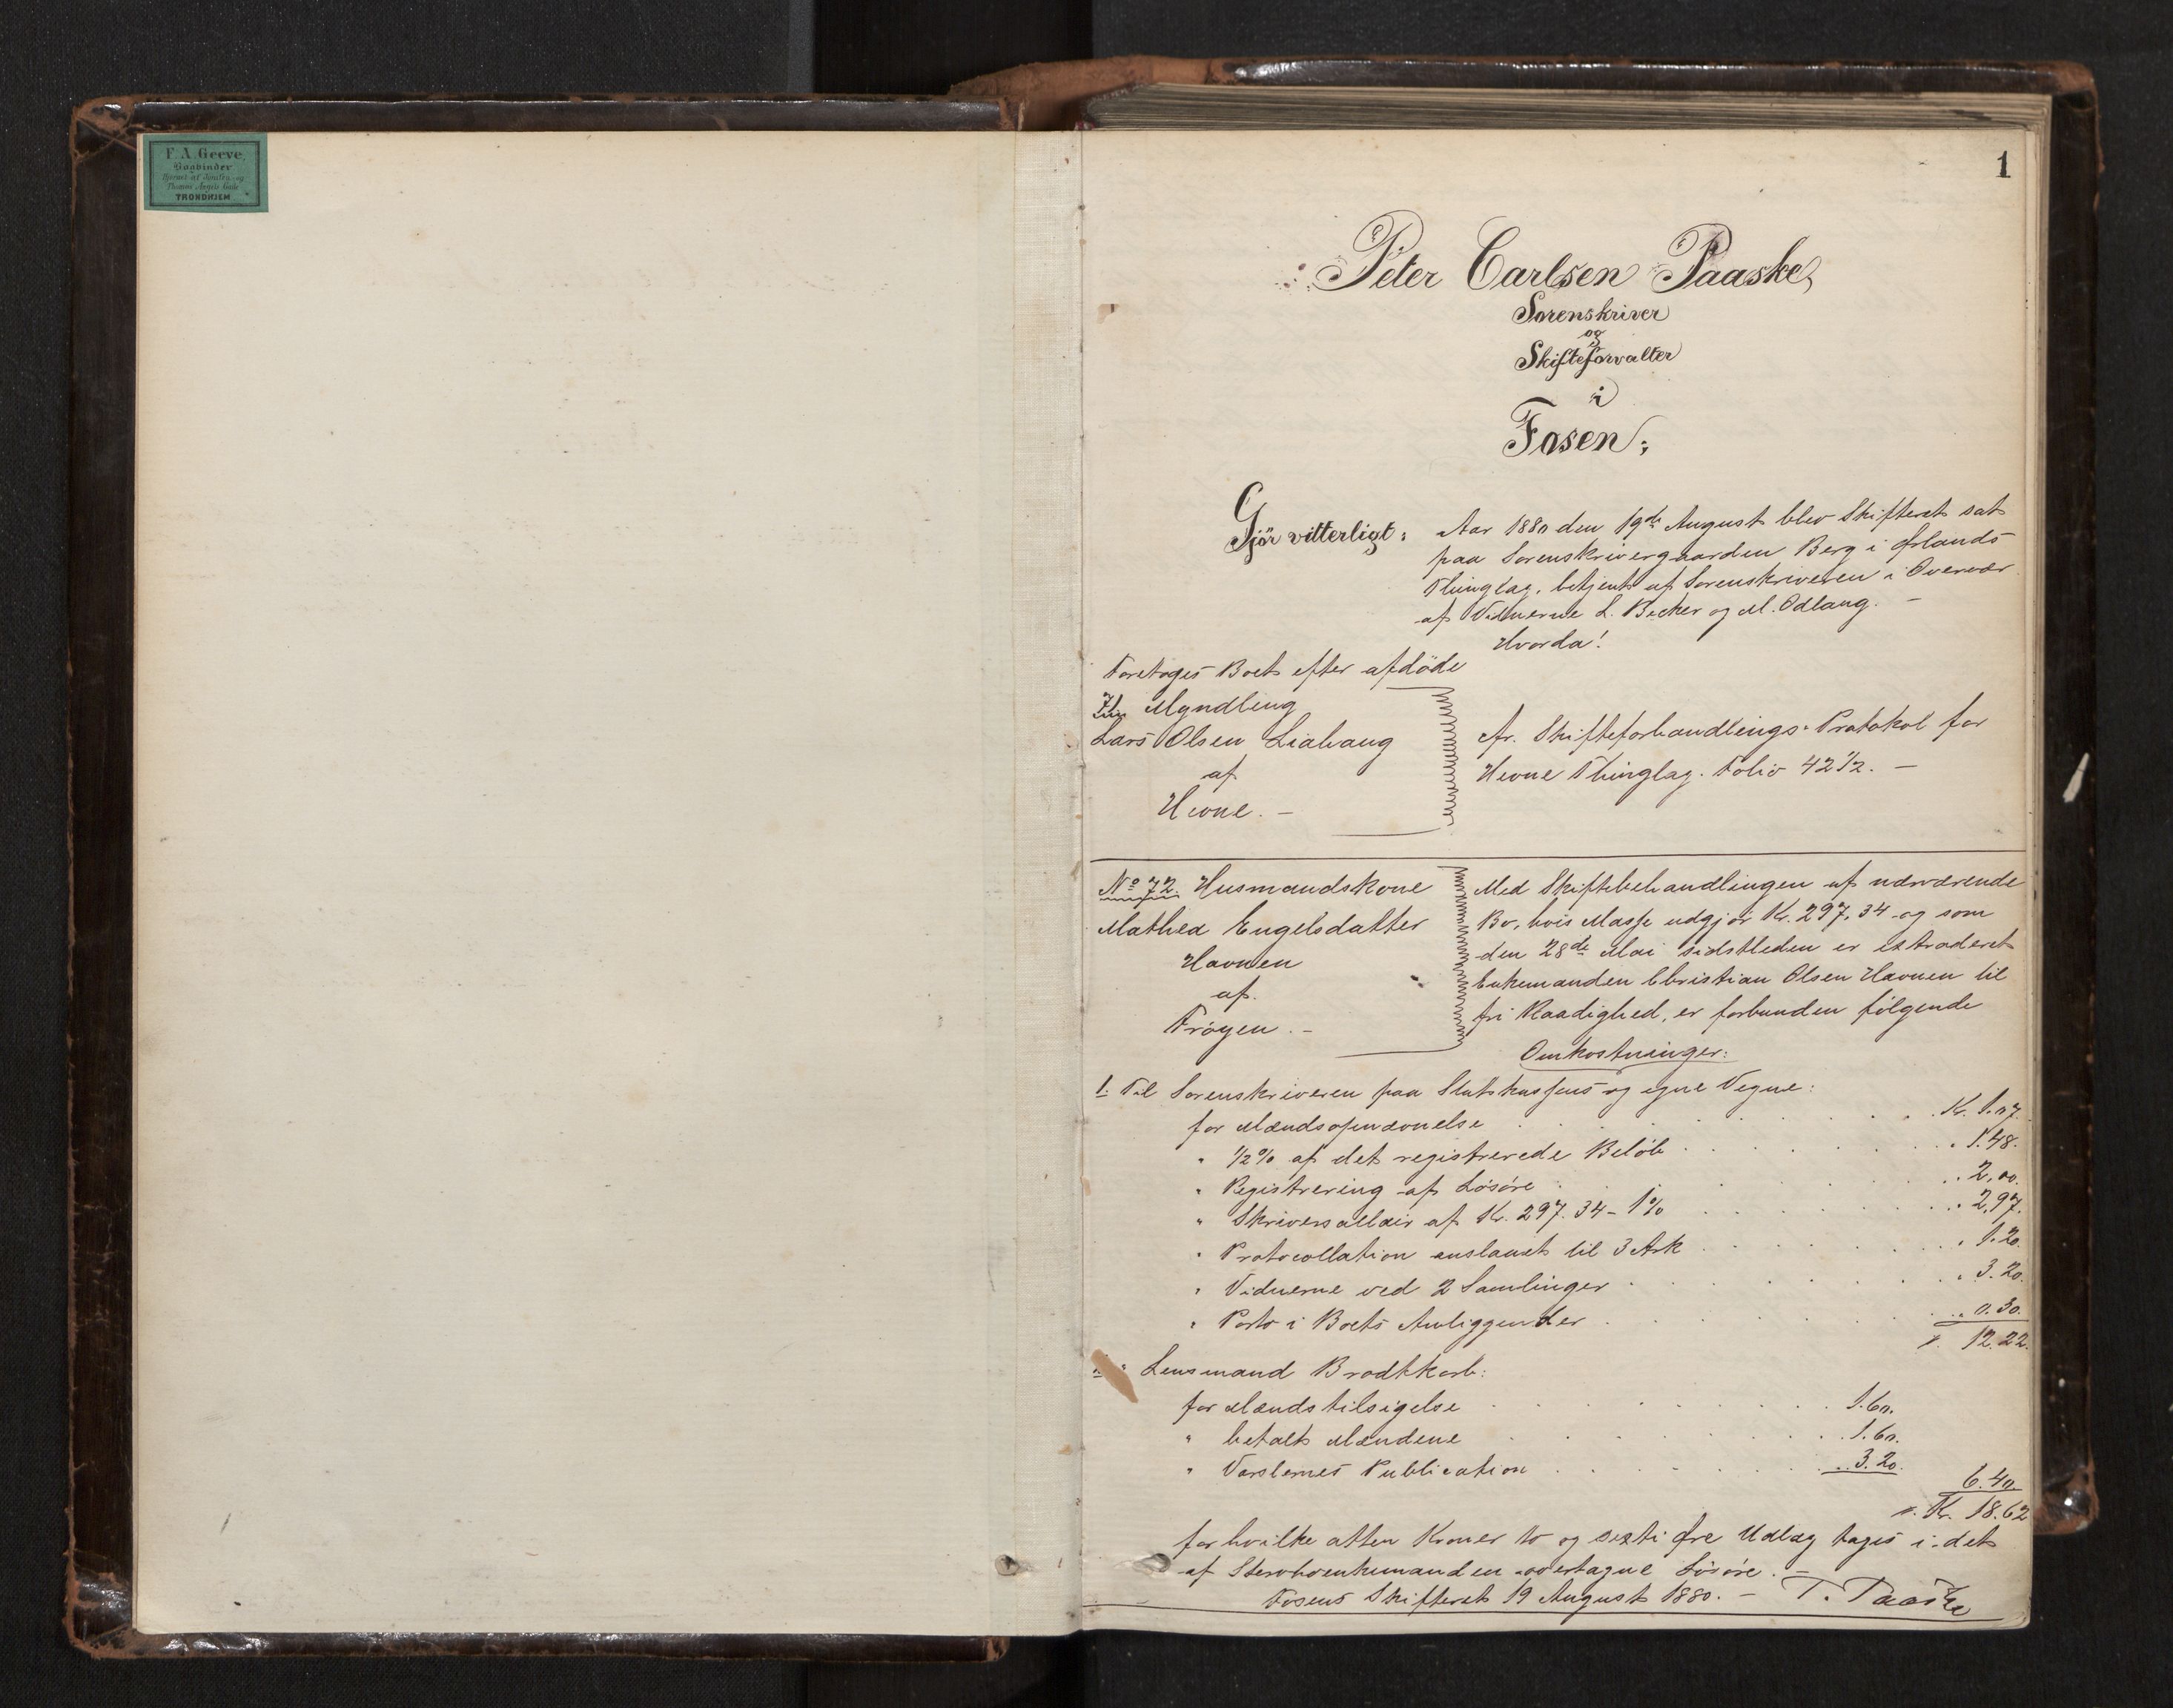 F. A. Geeve
Bogbinder
Hjørnet af Jomfru- og
Thomas Angels Gade
TRONDHJEM
1
Peter Carlsen Paaske,
Sorenskriver
og
Skifteforvalter
i
Fosen;
Gjör vitterligt: Aar 1880 den 19de August blev Skifteret sat
paa Sorenskrivergaarden Berg i Ørlands
Thinglag, betjent af Sorenskriveren i Overvær
af Vidnerne L. Becker og M. Odlaug. –
Hvorda!
Foretoges Boet efter afdöde
71 Myndling
Lars Olsen Liahaug
af
Hevne. –
cfr. Skifteforhandlings-Protokol for
Hevne Thinglag. Folio 42 1/2. –
No 72. Husmandskone
Mathea Engelsdatter
Havnen
af
Fröyen. –
Med Skiftebehandlingen af nærværende
Bo, hvis Masse udgjör Kr. 297,34 og som
den 28de Mai sidstleden er extraderet
Enkemanden Christian Olsen Havnen til
fri Raadighed, er forbunden fölgende
Omkostninger:
1. Til Sorenskriveren paa Statskassens og egne Vegne:
for Mændsopnævnelse Kr. 1.07.
" 1/2 % af det registrerede Belöb " 1.48.
" Registrering af Lösöre " 2,00.
" Skriversallær af Kr. 297.34 – 1 % " 2,97.
" Protocollation anslaaet til 3 Ark " 1.20.
" Vidnerne ved 2 Samlinger " 3.20.
" Porto i Boets Anliggender " 0.30.
12.22.
" Lensmand Brodtkorb:
for Mændstilsigelse 1.60.
" betalt Mændene 1.60.
" Varslernes Publication 3.20.
6.40
Kr. 18.62
for hvilke atten Kroner to og sexti Øre Udlæg tages i det
af Stervboenkemanden overtagne Lösöre. –
Fosens Skifteret 19 August 1880. – P. Paaske